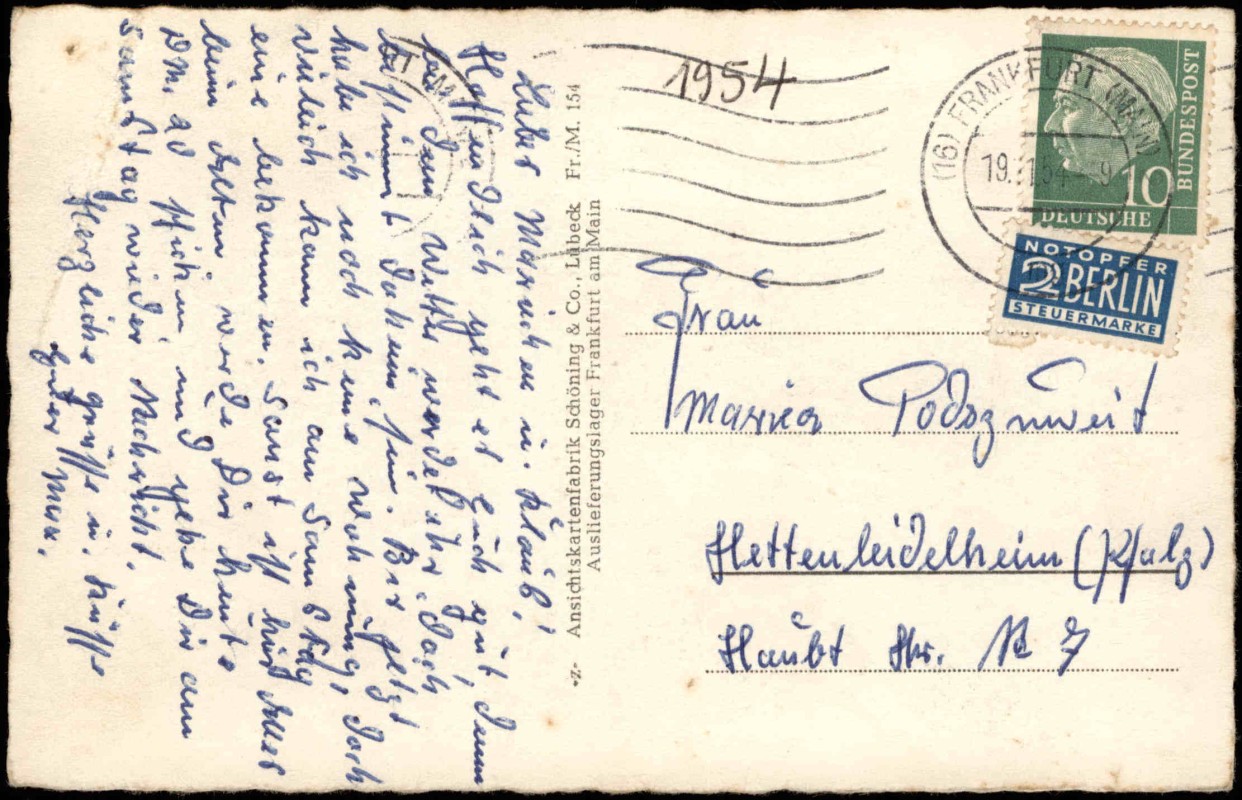 Liebes Mariechen u. Klaus!
Hoffendlich geht es Euch gut, denn
bei dem Wetter werdet ihr doch
bestimmt daheim sein. Bis jetzt
habe ich noch keine Wohnung, doch
vieleich kann ich am Samstag
eine bekommen. Sonst ist hier alles
beim Alten, werde Dir heute
DM. 20 schicken und gebe Dir am
Samstag wieder Nachricht.
Herzliche Grüsse u. Küsse
Euer Max.
-z- Ansichtskartenfabrik Schöning & Co., Lübeck Fr./M. 154
Auslieferungslager Frankfurt am Main
1954
(16) FRANKFURT (MAIN)
19. 1.54 - 9
BUNDESPOST
10
DEUTSCHE
NOTOPFER
2 BERLIN
STEUERMARKE
Frau
Maria Podszuweit
Hettenleidelheim (Pfalz)
Haubt Str. № 7